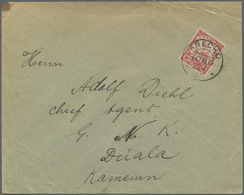 ANECHO
TOGO
Herrn
Adolf Diehl
chief Agent
G. N. K.
Duala
Kamerun